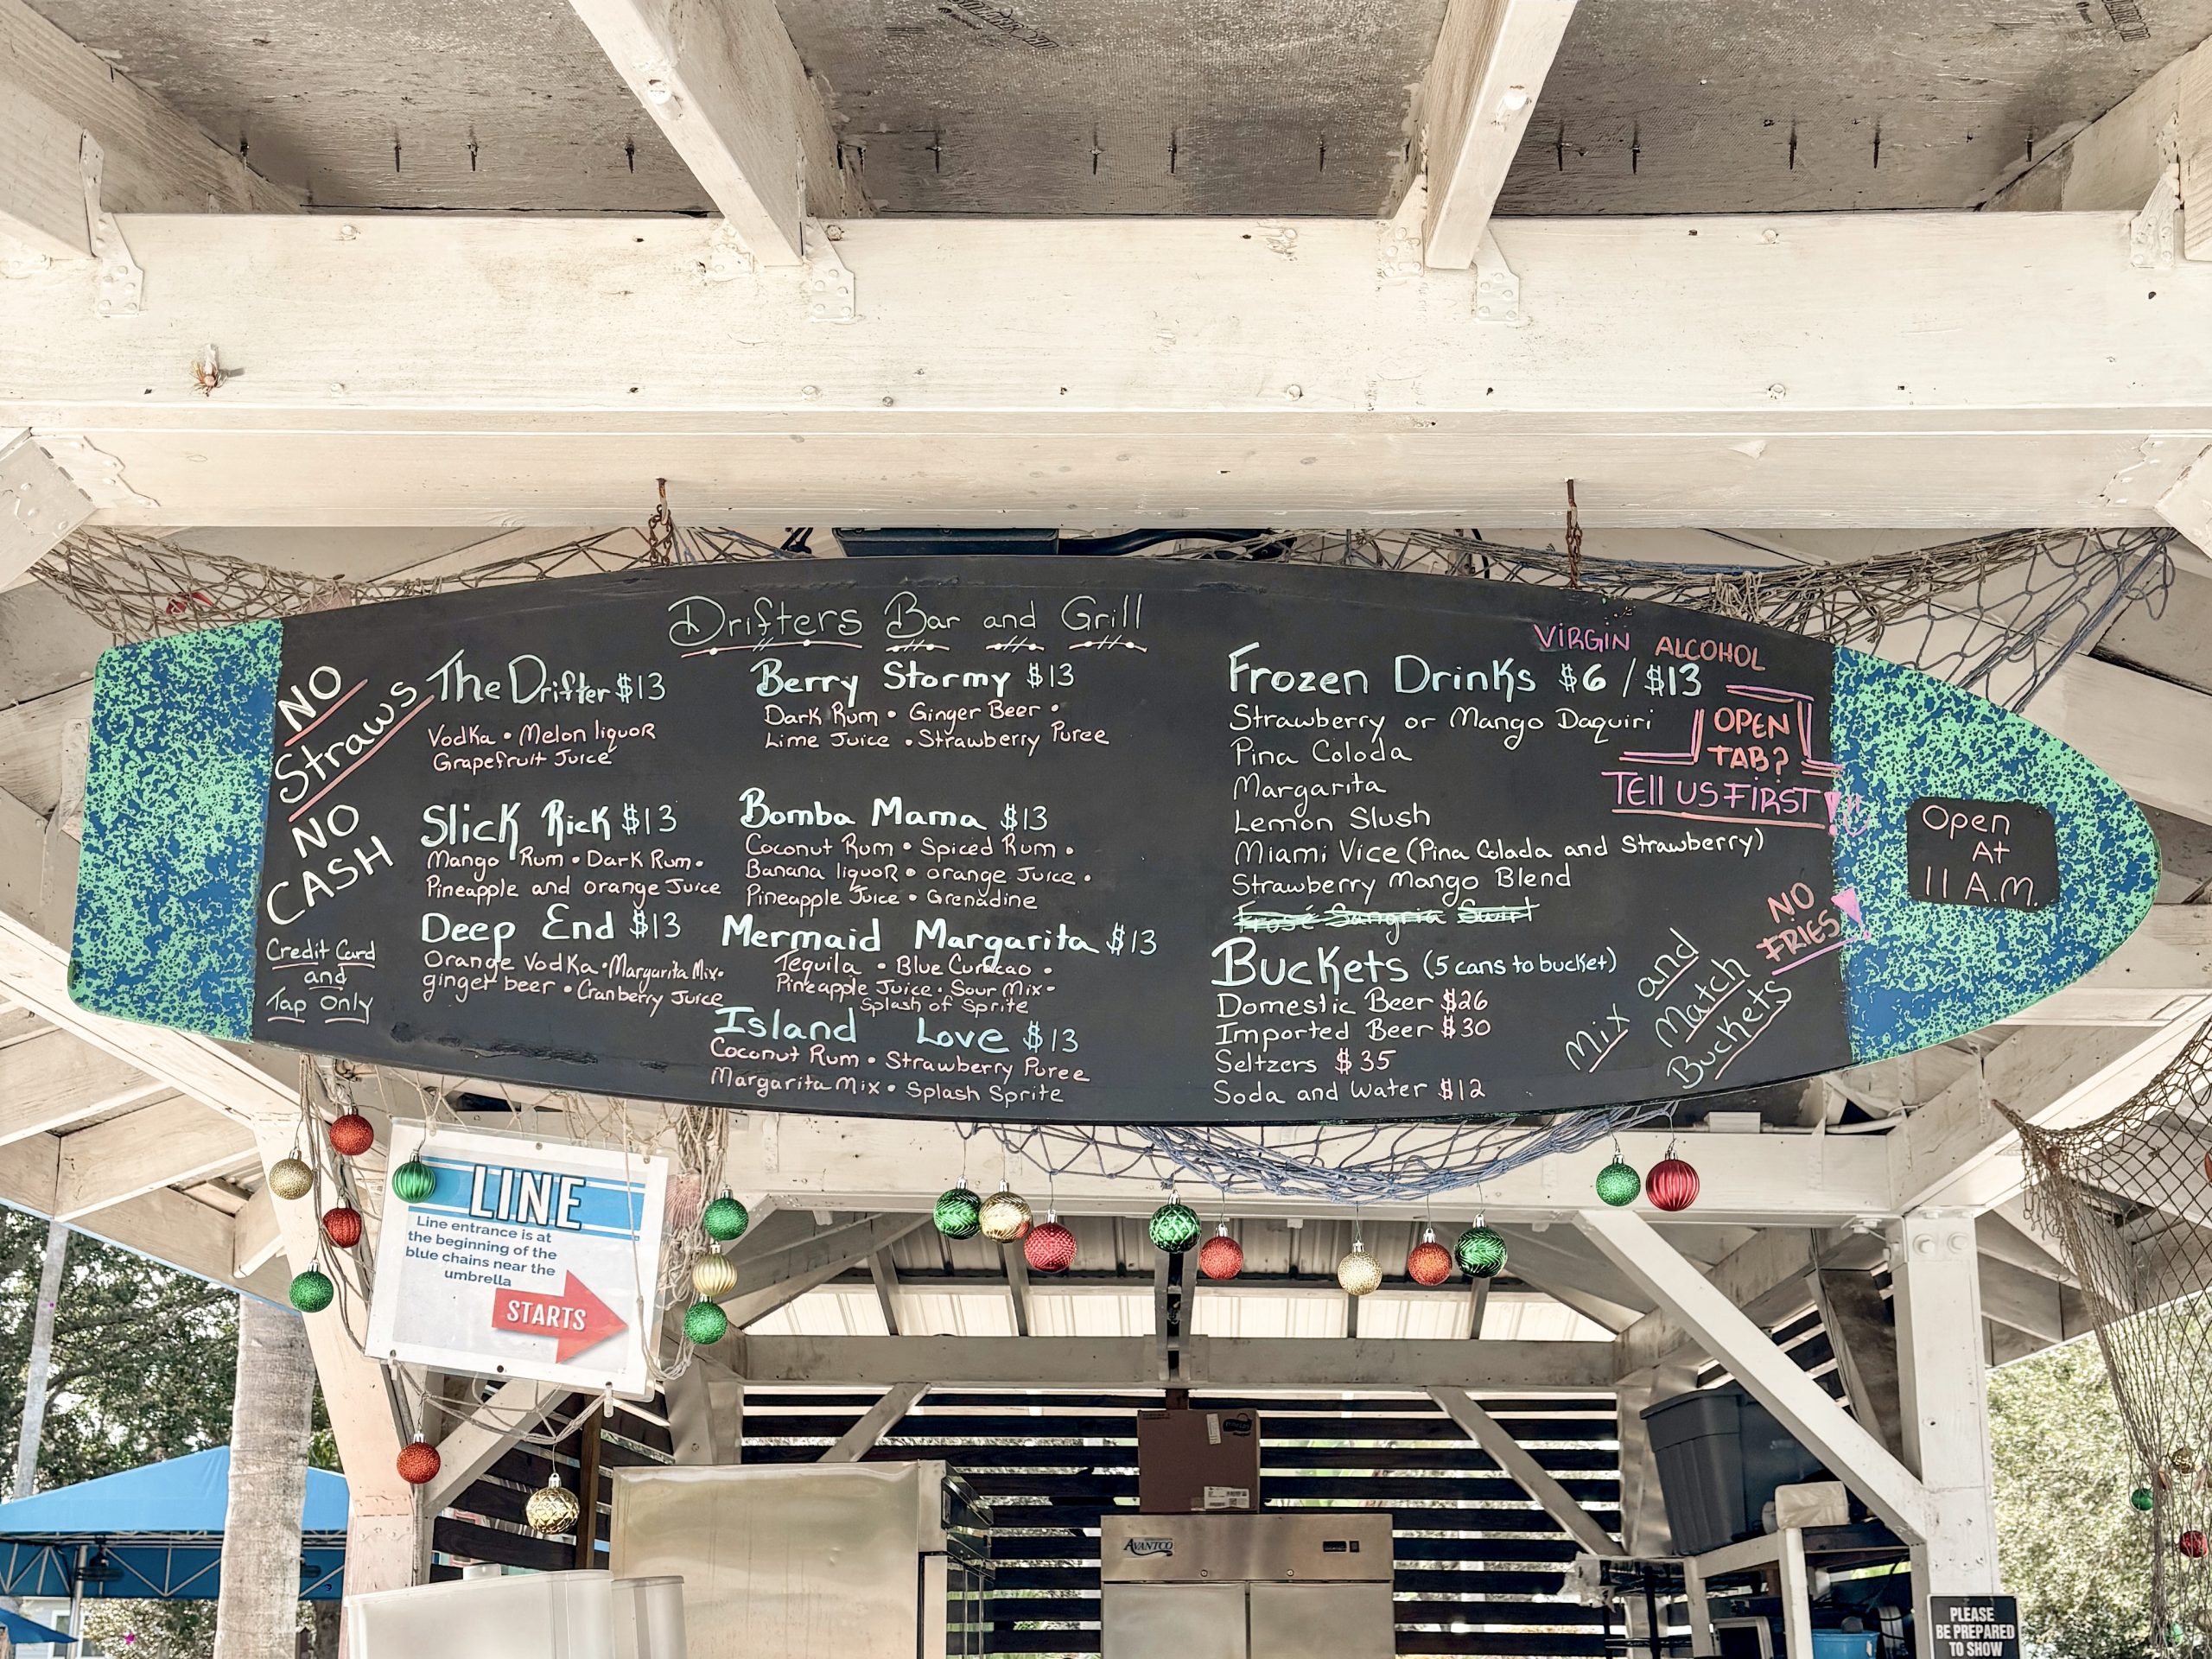 Drifters Bar and Grill
NO
Straws
NO
CASH
Credit Card
and
Tap Only
The Drifter $13
Vodka • Melon liquor
Grapefruit Juice
Slick Rick $13
Mango Rum • Dark Rum •
Pineapple and orange Juice
Deep End $13
Orange Vodka • Margarita Mix •
ginger beer • Cranberry Juice
Berry Stormy $13
Dark Rum • Ginger Beer •
Lime Juice • Strawberry Puree
Bomba Mama $13
Coconut Rum • Spiced Rum •
Banana liquor • orange Juice •
Pineapple Juice • Grenadine
Mermaid Margarita $13
Tequila • Blue Curacao •
Pineapple Juice • Sour Mix •
Splash of Sprite
Island Love $13
Coconut Rum • Strawberry Puree
Margarita Mix • Splash Sprite
VIRGIN ALCOHOL
Frozen Drinks $6 / $13
Strawberry or Mango Daquiri
Pina Coloda
Margarita
Lemon Slush
Miami Vice (Pina Colada and Strawberry)
Strawberry Mango Blend
Frosé Sangria Swirl
Buckets (5 cans to bucket)
Domestic Beer $26
Imported Beer $30
Seltzers $35
Soda and Water $12
OPEN
TAB?
TELL US FIRST!!
NO
FRIES!
Mix and
Match
Buckets
Open
At
11 A.M.
LINE
Line entrance is at
the beginning of the
blue chains near the
umbrella
STARTS
AVANTCO
PLEASE
BE PREPARED
TO SHOW